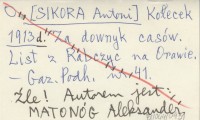 O, [SIKORA Antoni] Kołecek
1913 d. Za downyk casów.
List z Rabczyc na Orawie.
– Gaz. Podh. nr 41.
Źle! Autorem jest:
MATONÓG Aleksander